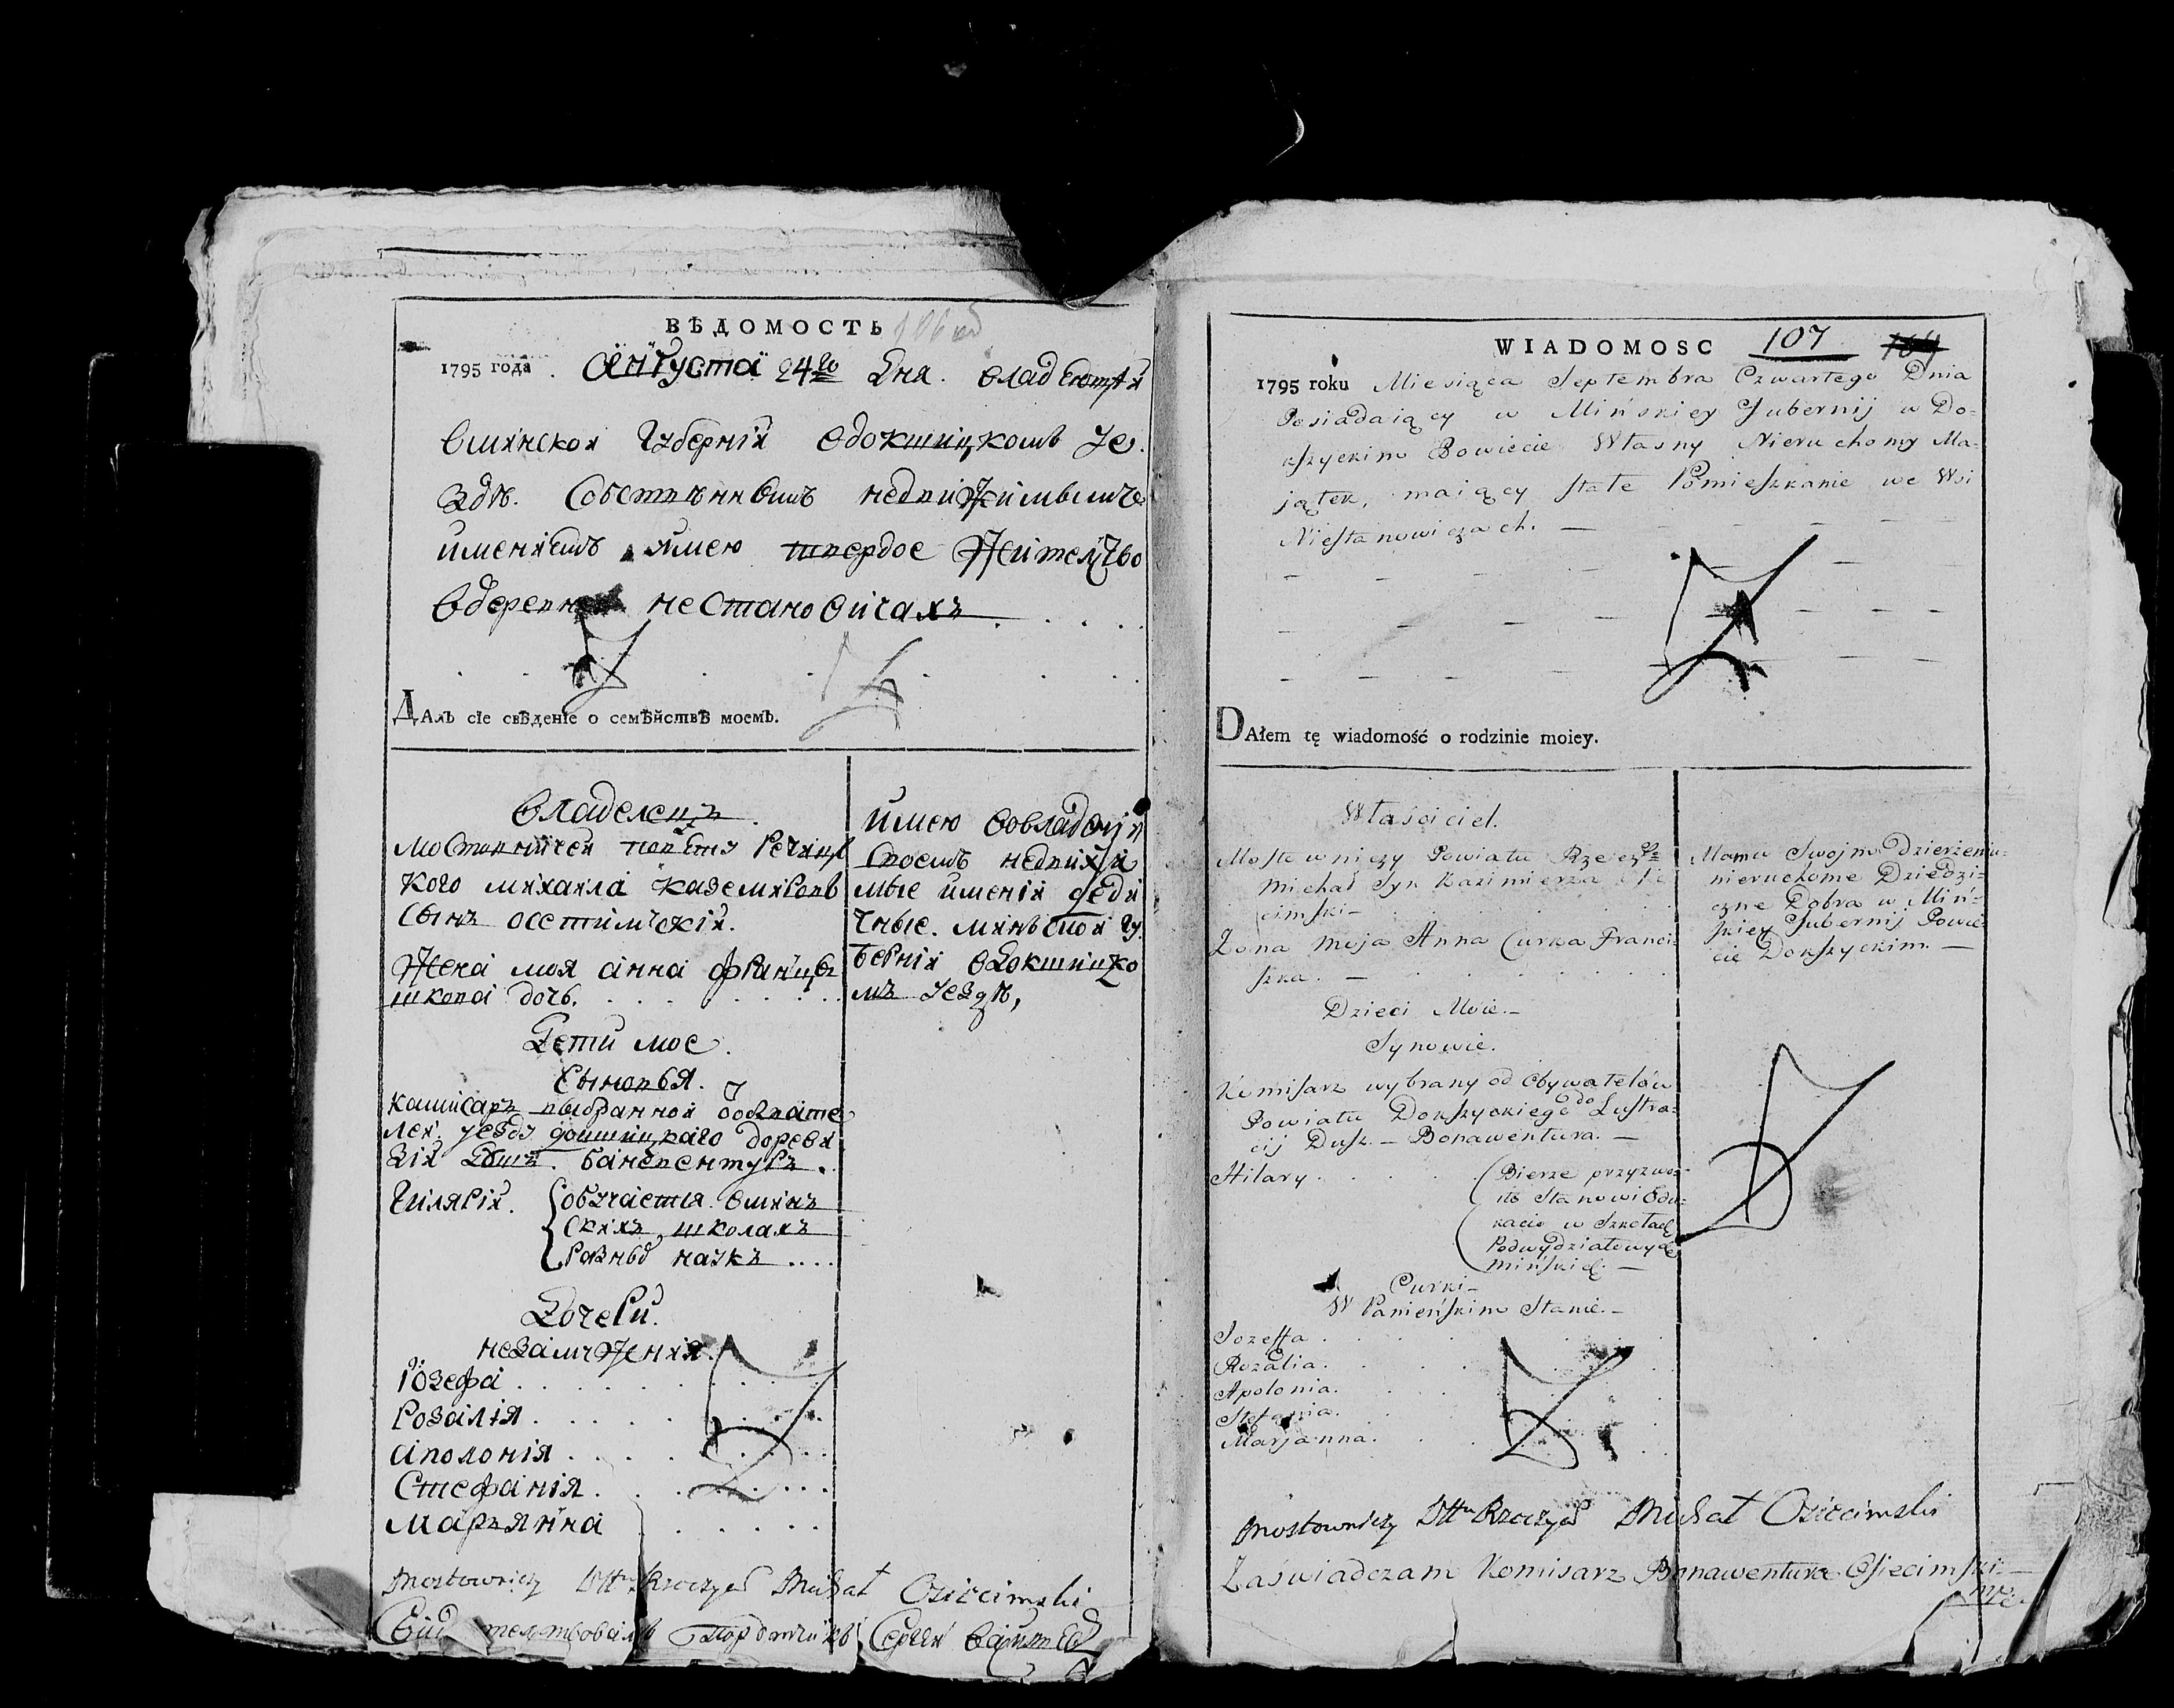 ВѢДОМОСТЬ
1795 года. августа 24го дня. владеющѣй
вминской губерніи вдокшицкомъ уе
здѣ. собственнымъ недвижимымъ
имениемъ имею твердое жительство
вдеревне нестановичахъ
Далъ сіе свѣденіе о семѣйствѣ моемъ.
владелецъ.
мостовничей повету речиц
кого михаила каземировъ
сынъ осетимский.
жена моя анна францы
шкова дочь.
дети мое.
сыновья.
комисаръ выбранной
уезду докшицкаго дореви
зіи душъ. банавентуръ.
Гилярій. обучается вмин
скихъ школахъ
разныхъ наукъ
дочери.
незамужнія.
Іозефа
Розалія
аполонія
Стефанія
марьянна
имею вовладении
своемъ недвижи
мые имении деди
чные. минской гу
берніи вдокшицко
мъ уездѣ,
Mostowniczy Michał Osiecimski
Сергей
WIADOMOSC 107
1795 roku Miesiąca Septembra Czwartego Dnia
Posiadaiący w Mińskiey Gubernij w Do-
kszyckim Powiecie Własny Nieruchomy Ma-
jątek, maiący stałe Pomieszkanie we Wsi
Niestanowiczach.
DAłem tę wiadomość o rodzinie moiey.
Właściciel.
Mostowniczy Powiatu Rzeczgo
Michał Syn Kazimierza Osie
cimski
Zona Moja Anna Curka Franci-
szka.
Dzieci Moie.
Synowie.
Komisarz wybrany od Obywatelów
Powiatu Dokszyckiego do Lustra-
cij Dusz. Bonawentura.
Hilary. Bierze przyzwoi-
tą Stanowi Edu-
kacie w Szkołach
Podwydziałowych
Mińskich.
Curki
W Panieńskim Stanie.
Jozeffa
Rozalia.
Apolonia.
Stefania.
Marjanna.
Mamu Swojm Dzierżeniu
nieruchome Dziedzi-
czne Dobra w Miń-
skiey Gubernij Powie-
cie Dokszyckim.
Mostowniczy Michał Osiecimski
Zaświadczam Komisarz Bonawentura Osiecimski